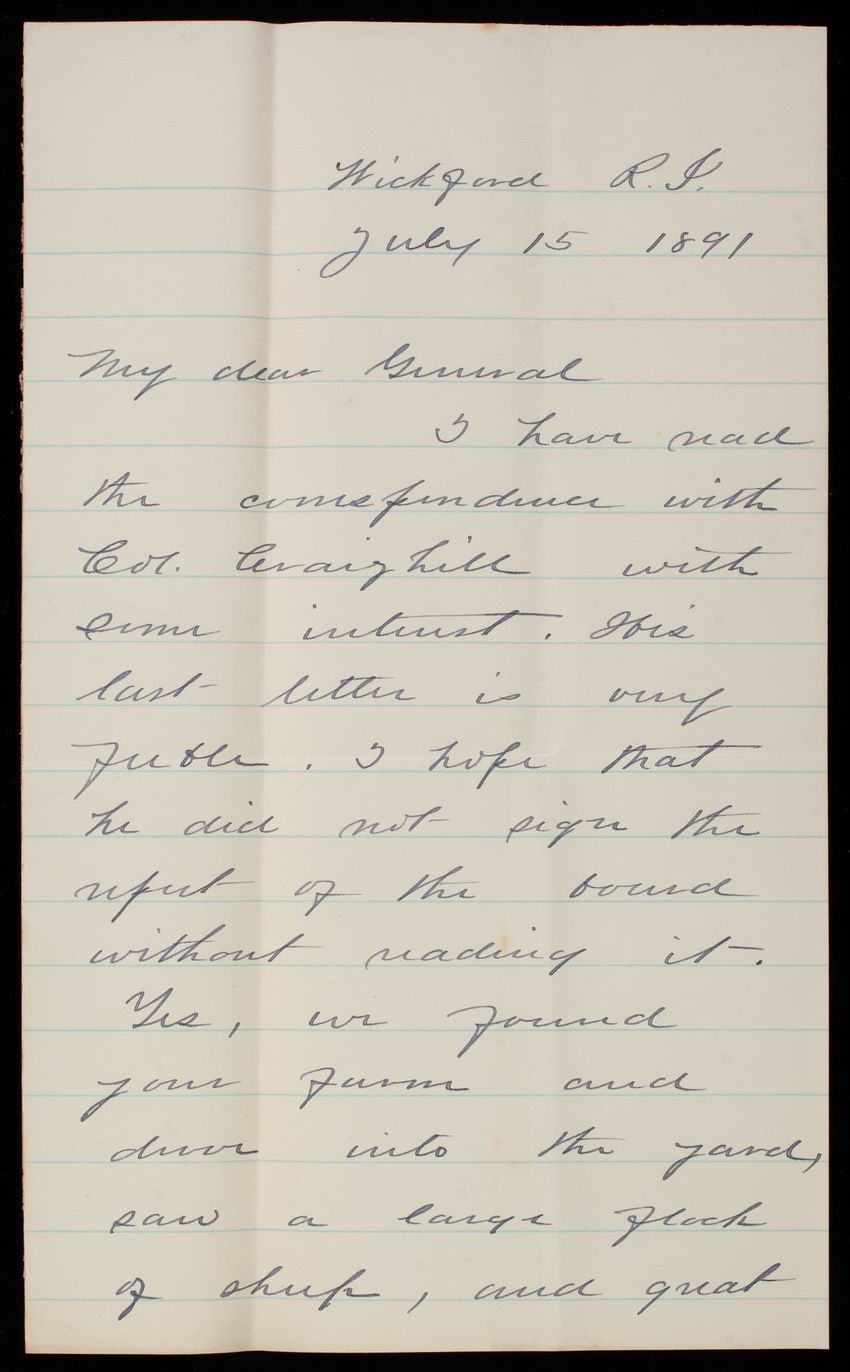 Wickford R.I.
July 15 1891
My dear General
I have read
the correspondence with
Col. Craighill with
some interest. His
last letter is very
futile. I hope that
he did not sign the
report of the board
without reading it.
Yes, we found
your farm and
drove into the yard,
saw a large flock
of sheep, and great